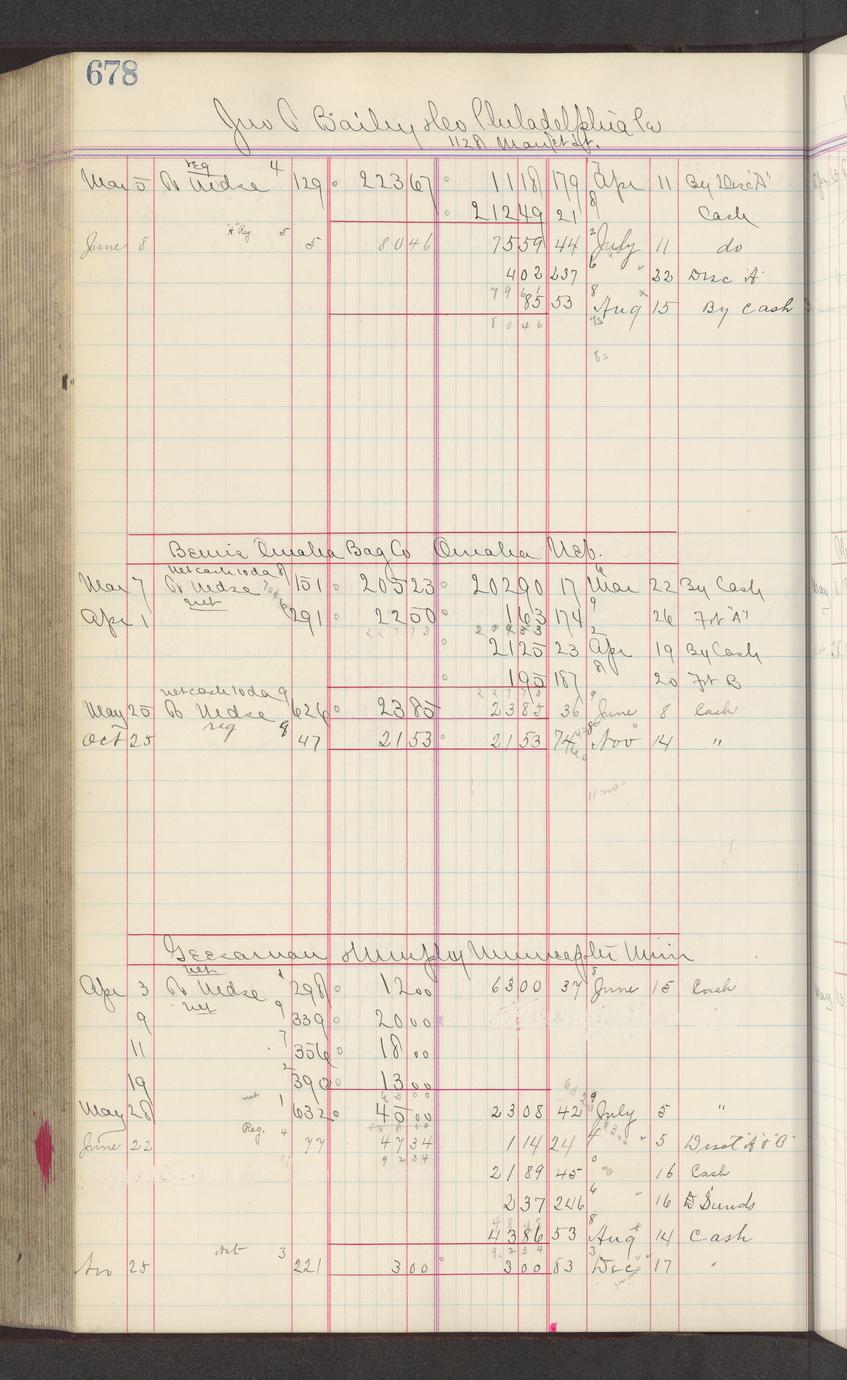 678
Jno P Bailey & Co Philadelphia Pa
1128 Market St.
Mar 5 To Mdse reg 4 129 223 67 11 18 179 Apr 11 By Disc "A"
212 49 21 8 Cash
June 8 "A" Reg 5 5 80 46 75 59 44 2 July 11 do
4 02 237 6 " 22 Disc "A"
79 61
85 53 8 Aug 15 By Cash
80 46
Bemis Omaha Bag Co Omaha Neb.
net cash 10 da
Mar 7 To Mdse 151 205 23 202 90 17 Mar 22 By Cash
Apr 1 net 291 22 50 1 63 174 9 26 Frt "A"
227 73 204 53
21 25 23 2 Apr 19 By Cash
1 95 187 8 20 Frt B
227 73
net cash 10 da 9
May 25 To Mdse 626 23 85 23 85 36 9 June 8 Cash
Oct 25 reg 9 47 21 53 21 53 74 Nov 14 "
11 mo.
Humphry Minn
Apr 3 To Mdse net 1 298 12 00 63 00 37 8 June 15 Cash
9 net 9 339 20 00
11 7 356 18 00
19 2 390 13 00
63 00
May 28 net 1 632 45 00 23 08 42 9 July 5 "
June 22 Reg. 4 77 47 34 1 14 24 4 " 5 Disct "A" & "B"
92 34
21 89 45 0 16 Cash
2 37 246 6 " 16 Sunds
48 48
43 86 53 8 Aug 14 Cash
92 34
Nov 25 net 3 221 3 00 3 00 83 3 Dec 17 "